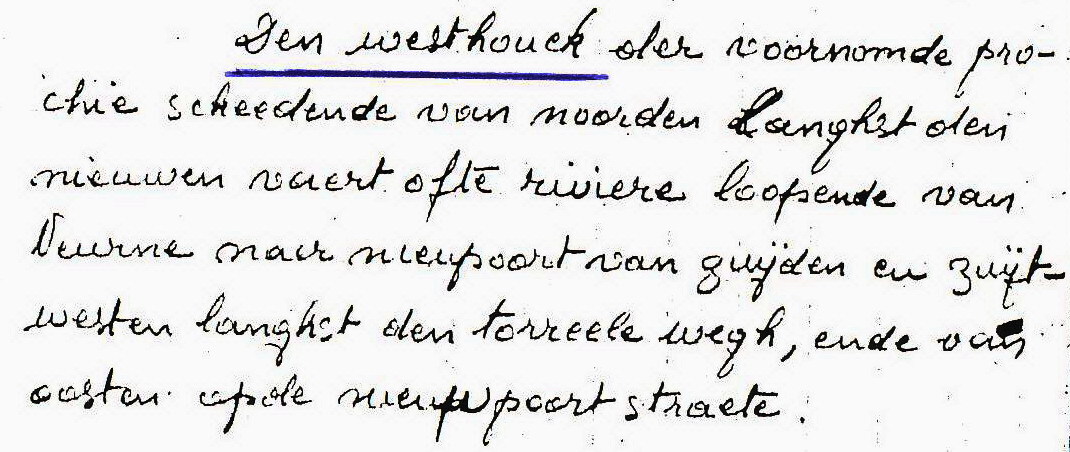 Den westhouck der voornomde pro-
chie scheedende van noorden Langhst den
nieuwen vaert ofte riviere loopende van
Veurne naer nieupoort van zuijden en zuijt-
westen langhst den torreele wegh, ende van
oosten opde nieupoort straete.